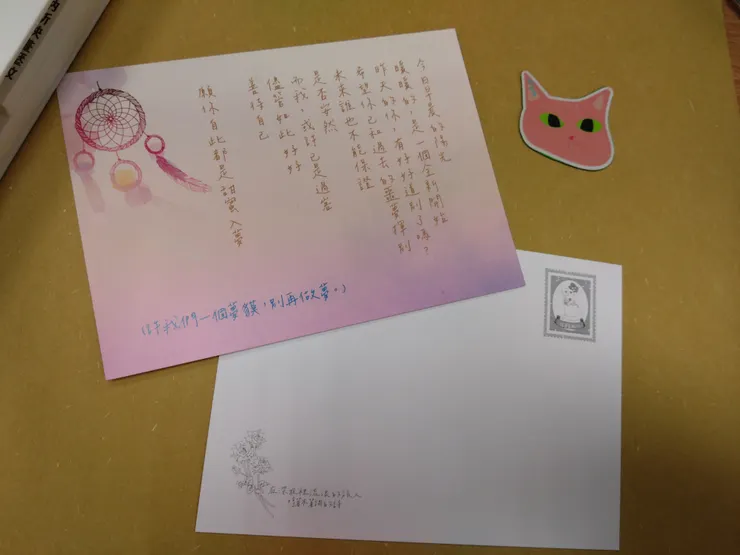 今日早晨的陽光
暖暖的,是一個全新開始
昨天的你,有好好道別了嗎?
希望你已和過去的噩夢揮別
未來誰也不能保證
是否安然
而我,或許已是過客
儘管如此 好好
善待自己
願你自此都是甜蜜入夢
我們一個夢,別再做夢。)